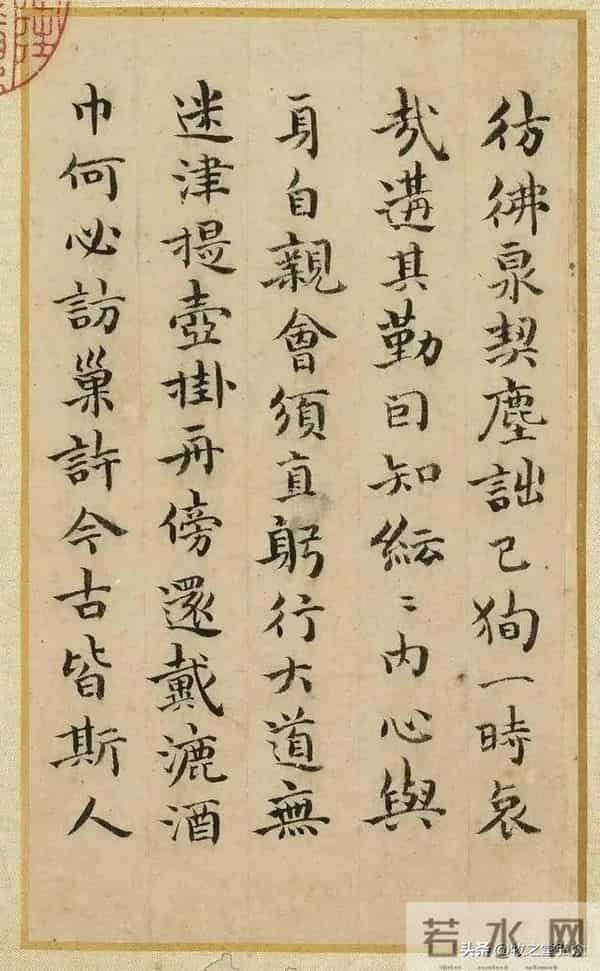 彷彿泉契塵詘己狥一時哀
哉遘其勤囙知紜〻内心與
身自親會須直躬行大道無
迷津提壺掛舟傍還戴漉酒
巾何必訪巢許今古皆斯人
若水网
头条 @牧之